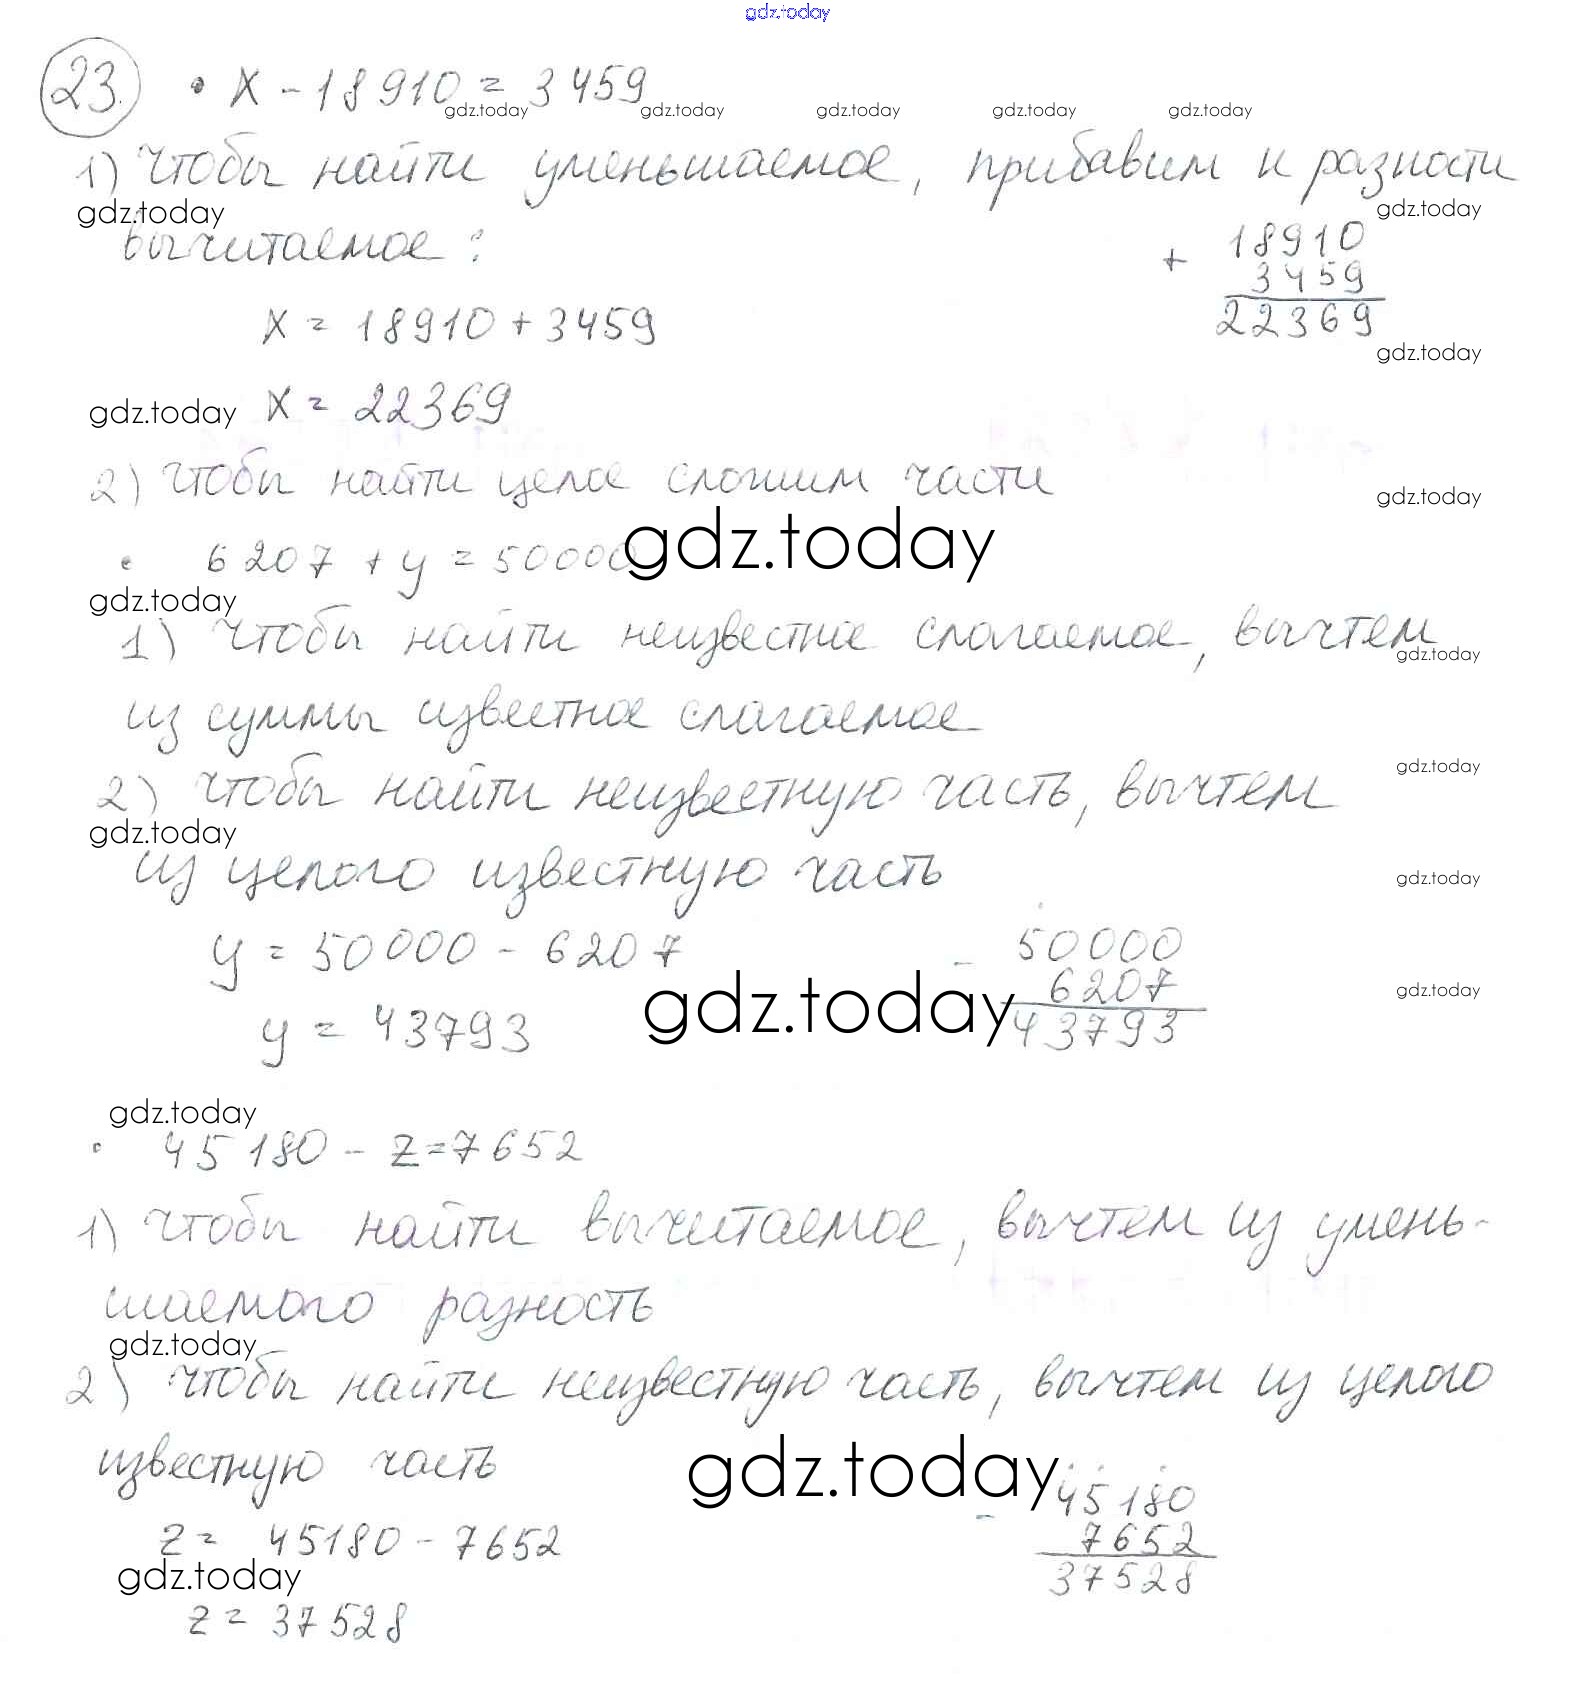 gdz.today
23. • x - 18910 = 3459
gdz.today gdz.today gdz.today gdz.today gdz.today
1) Чтобы найти уменьшаемое, прибавим к разности
gdz.today gdz.today
вычитаемое:
+ 18910
3459
22369
x = 18910 + 3459
gdz.today
gdz.today x = 22369
2) Чтобы найти целое сложим части
gdz.today
• 6207 + y = 50000
gdz.today
gdz.today
1) Чтобы найти неизвестное слагаемое, вычтем
gdz.today
из суммы известное слагаемое
gdz.today
2) Чтобы найти неизвестную часть, вычтем
gdz.today
из целого известную часть
gdz.today
y = 50000 - 6207
- 50000
6207
43793
gdz.today
gdz.today
y = 43793
gdz.today
• 45180 - z = 7652
1) Чтобы найти вычитаемое, вычтем из умень-
шаемого разность
gdz.today
2) Чтобы найти неизвестную часть, вычтем из целого
известную часть
gdz.today
- 45180
7652
37528
z = 45180 - 7652
gdz.today
z = 37528